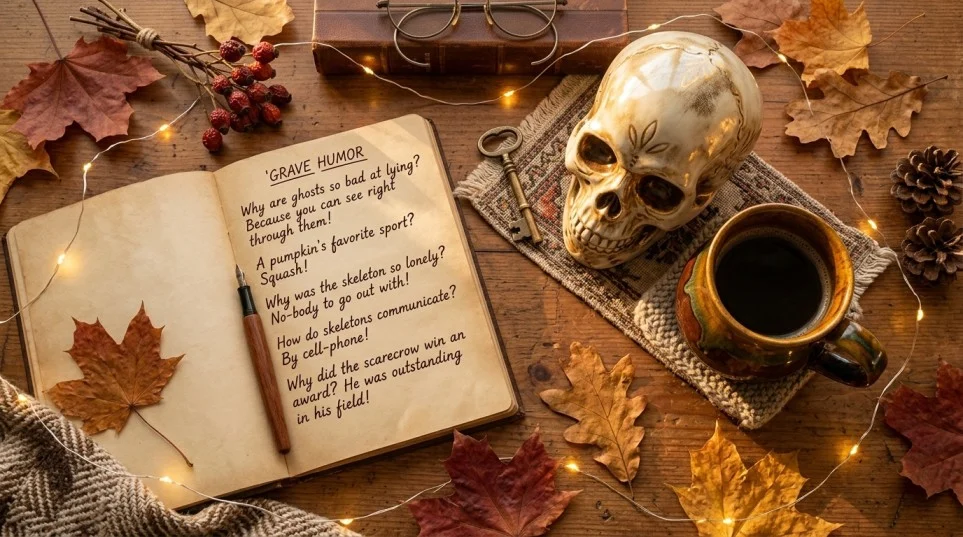 'GRAVE HUMOR
Why are ghosts so bad at lying?
Because you can see right
through them!
A pumpkin's favorite sport?
Squash!
Why was the skeleton so lonely?
No-body to go out with!
How do skeletons communicate?
By cell-phone!
Why did the scarecrow win an
award? He was outstanding
in his field!